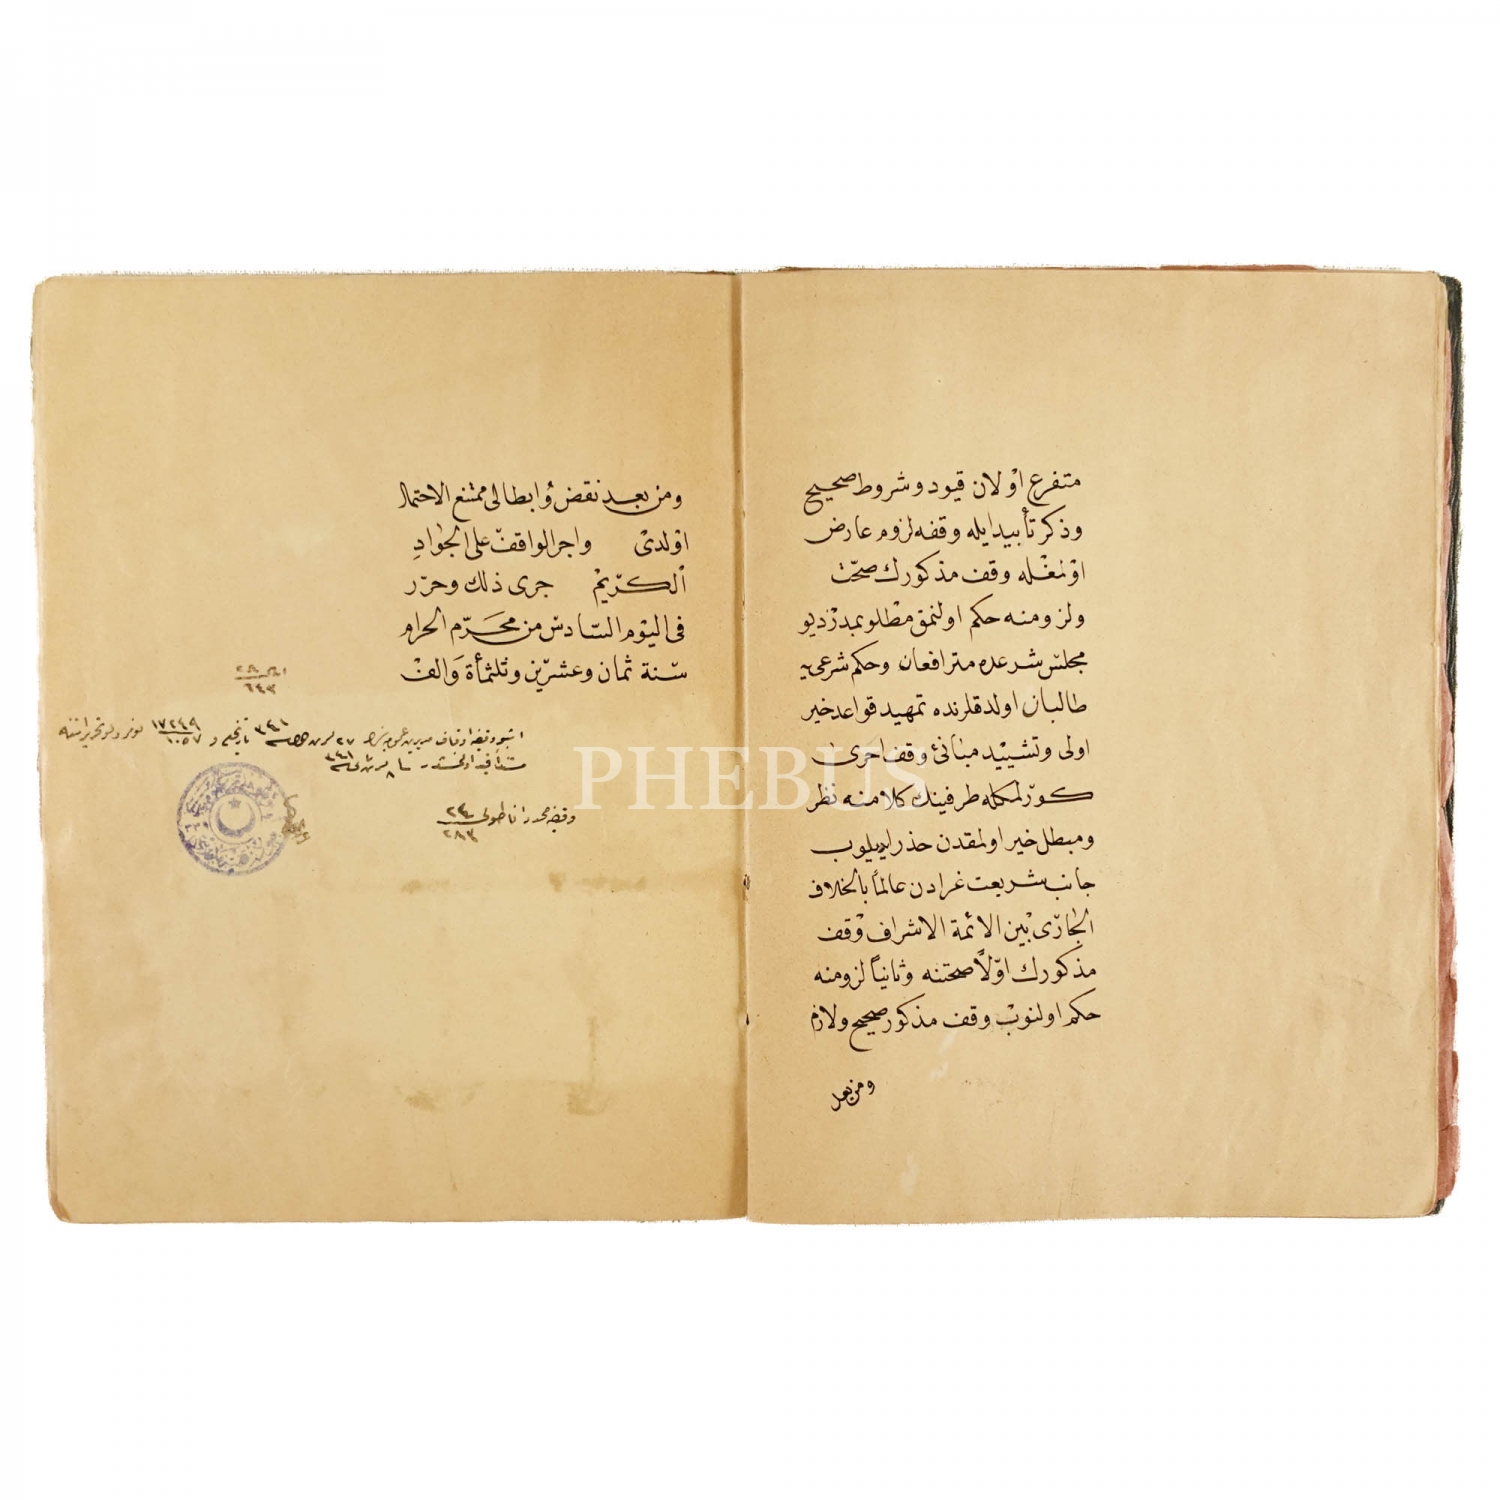 متفرع اولان قيود و شروط صحيح
وذكر تأبيد ايله وقفه لزوم عارض
اولمغله وقف مذكورك صحّت
ولزومنه حكم اولنمق مطلوبمدر ديو
مجلس شرعده مترافعان وحكم شرعى يه
طالبان اولدقلرنده تمهيد قواعد خير
اولى وتشييد مبانئ وقف احرى
كورلمكله طرفينك كلامنه نظر
ومبطل خير اولمقدن حذر ايديلوب
جانب شريعت غرادن عالماً بالخلاف
الجارى بين الائمة الاشراف وقف
مذكورك اوّلاً صحتنه وثانياً لزومنه
حكم اولنوب وقف مذكور صحيح ولازم
ومن بعد
ومن بعد نقض وابطالى ممتنع الاحتمال
اولدى واجر الواقف على الجواد
الكريم جرى ذلك وحرّر
فى اليوم السّادس من محرّم الحرام
سنة ثمان وعشرين وثلثمأة والف
٦٤٣
اشبو وقفيه اوقاف مديريت عموميه ٢٧ ٣٤١ تاريخلى و ١٧٢٤٩ ١٠٥٧ نومرولو
٣٤١
وقفيه مجدد اناطولى ٢٤
٢٨٣
PHEBUS